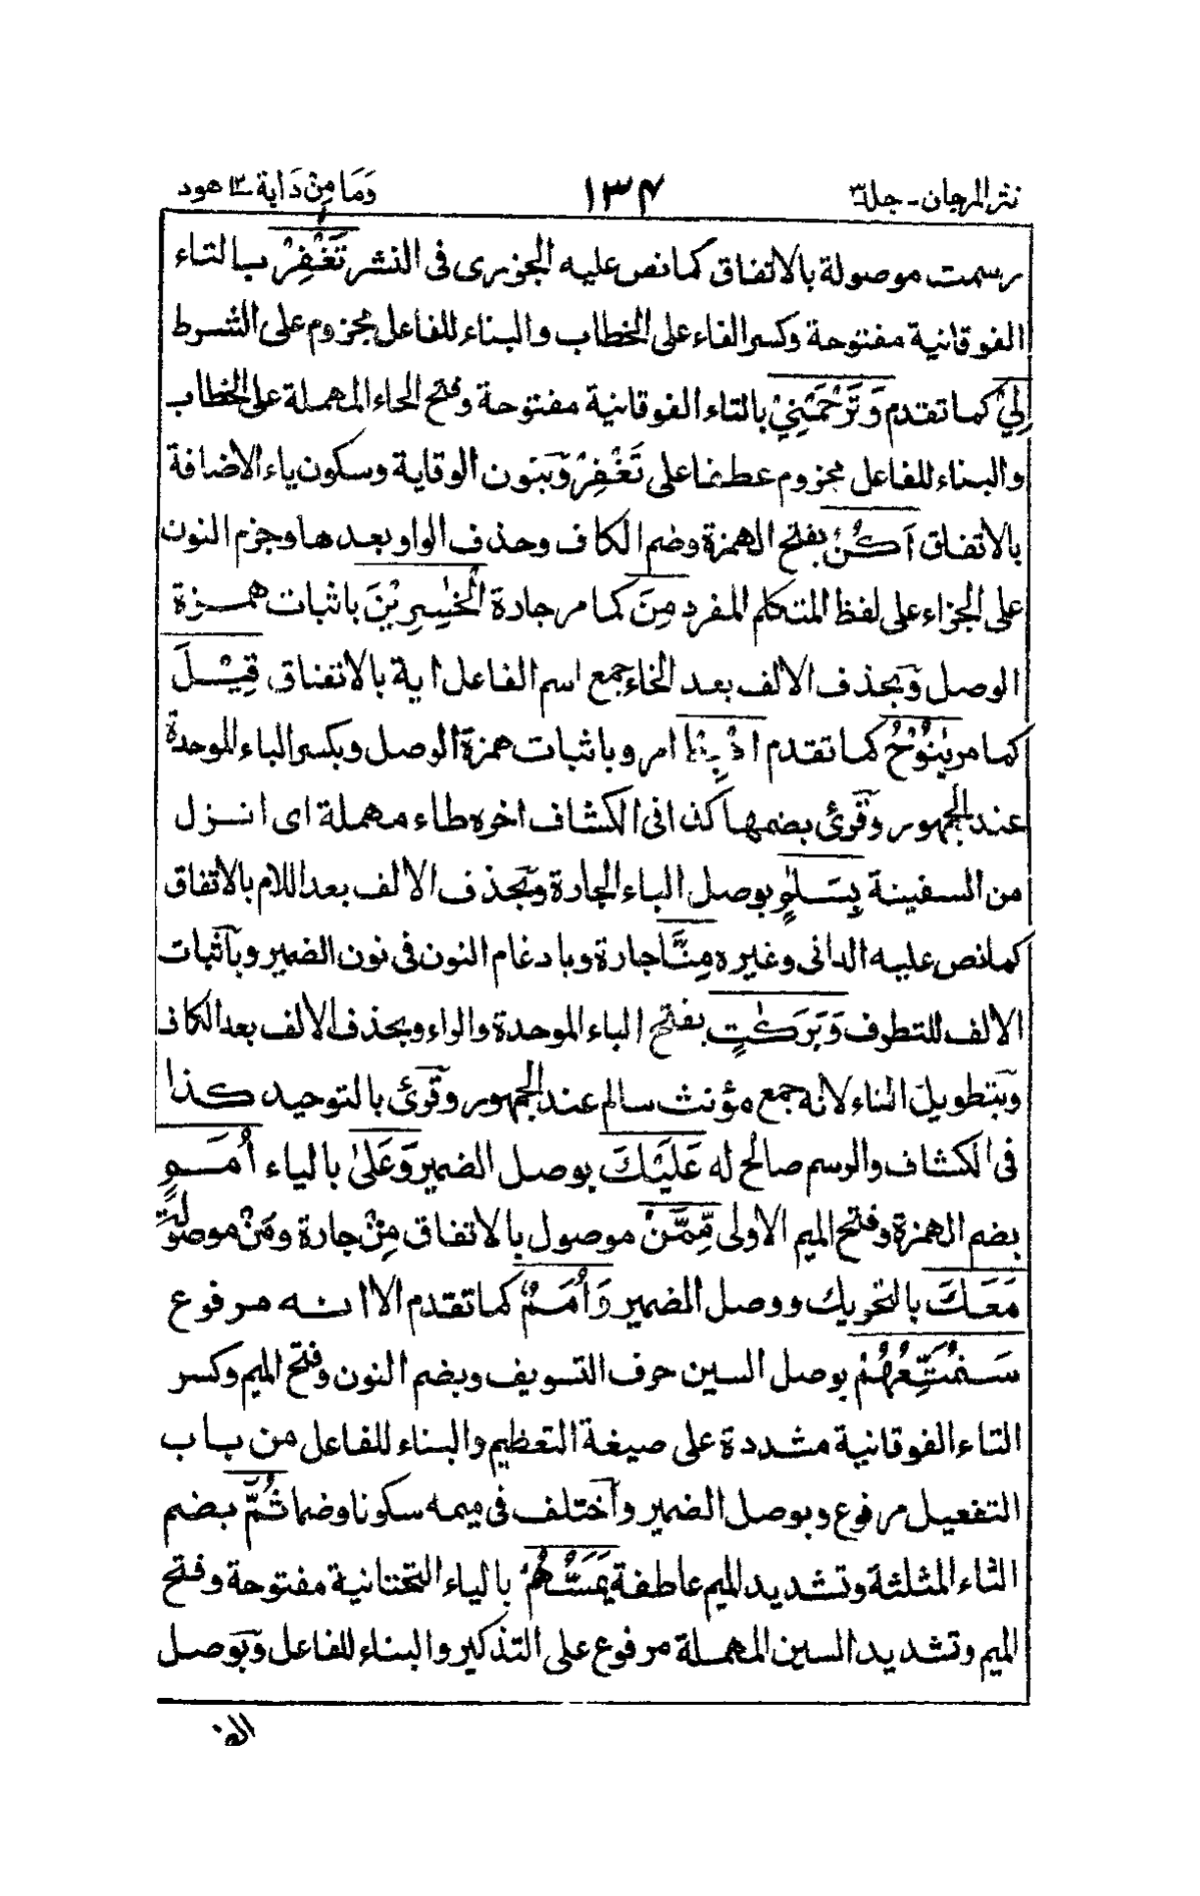 نثر المرجان - جلد ٣ ١٣٤ وَمَا مِنْ دَابة ١٢ هود
رسمت موصولة بالاتفاق كما نص عليه الجزرى فى النشر تَغْفِرْ بالتاء
الفوقانية مفتوحة وكسر الفاء على الخطاب والبناء للفاعل مجزوم على الشرط
لِيْ كما تقدم وَتَرْحَمْنِيْ بالتاء الفوقانية مفتوحة وفتح الحاء المهملة على الخطاب
والبناء للفاعل مجزوم عطفا على تَغْفِرْ وبنون الوقاية وسكون ياء الاضافة
بالاتفاق اَكُنْ بفتح الهمزة وضم الكاف وحذف الواو بعدها وجزم النون
على الجزاء على لفظ المتكلم المفرد مِنَ كما مر جادة الْخٰسِرِيْنَ باثبات همزة
الوصل وبحذف الالف بعد الخاء جمع اسم الفاعل اية بالاتفاق قِيْلَ
كما مر يٰنُوْحُ كما تقدم اهْبِطْ امر وباثبات همزة الوصل وبكسر الباء الموحدة
عند الجمهور وقرئ بضمها كذا فى الكشاف اخره طاء مهملة اى انزل
من السفينة بِسَلٰمٍ بوصل الباء الجارة وبحذف الالف بعد اللام بالاتفاق
كما نص عليه الدانى وغيره مِنَّا جارة وبادغام النون فى نون الضمير وباثبات
الالف للتطرف وَبَرَكٰتٍ بفتح الباء الموحدة والراء وبحذف الالف بعد الكاف
وبتطويل التاء لانه جمع مؤنث سالم عند الجمهور وقرئ بالتوحيد كذا
فى الكشاف والرسم صالح له عَلَيْكَ بوصل الضمير وَعَلىٰ بالياء اُمَمٍ
بضم الهمزة وفتح الميم الاولى مِّمَّنْ موصول بالاتفاق مِنْ جارة ومَنْ موصولة
مَعَكَ بالتحريك ووصل الضمير وَاُمَمٌ كما تقدم الا انه مرفوع
سَنُمَتِّعُهُمْ بوصل السين حرف التسويف وبضم النون وفتح الميم وكسر
التاء الفوقانية مشددة على صيغة التعظيم والبناء للفاعل من باب
التفعيل مرفوع وبوصل الضمير واختلف فى ميمه سكونا وضما ثُمَّ بضم
الثاء المثلثة وتشديد الميم عاطفة يَمَسُّهُمْ بالياء التحتانية مفتوحة وفتح
الميم وتشديد السين المهملة مرفوع على التذكير والبناء للفاعل وبوصل